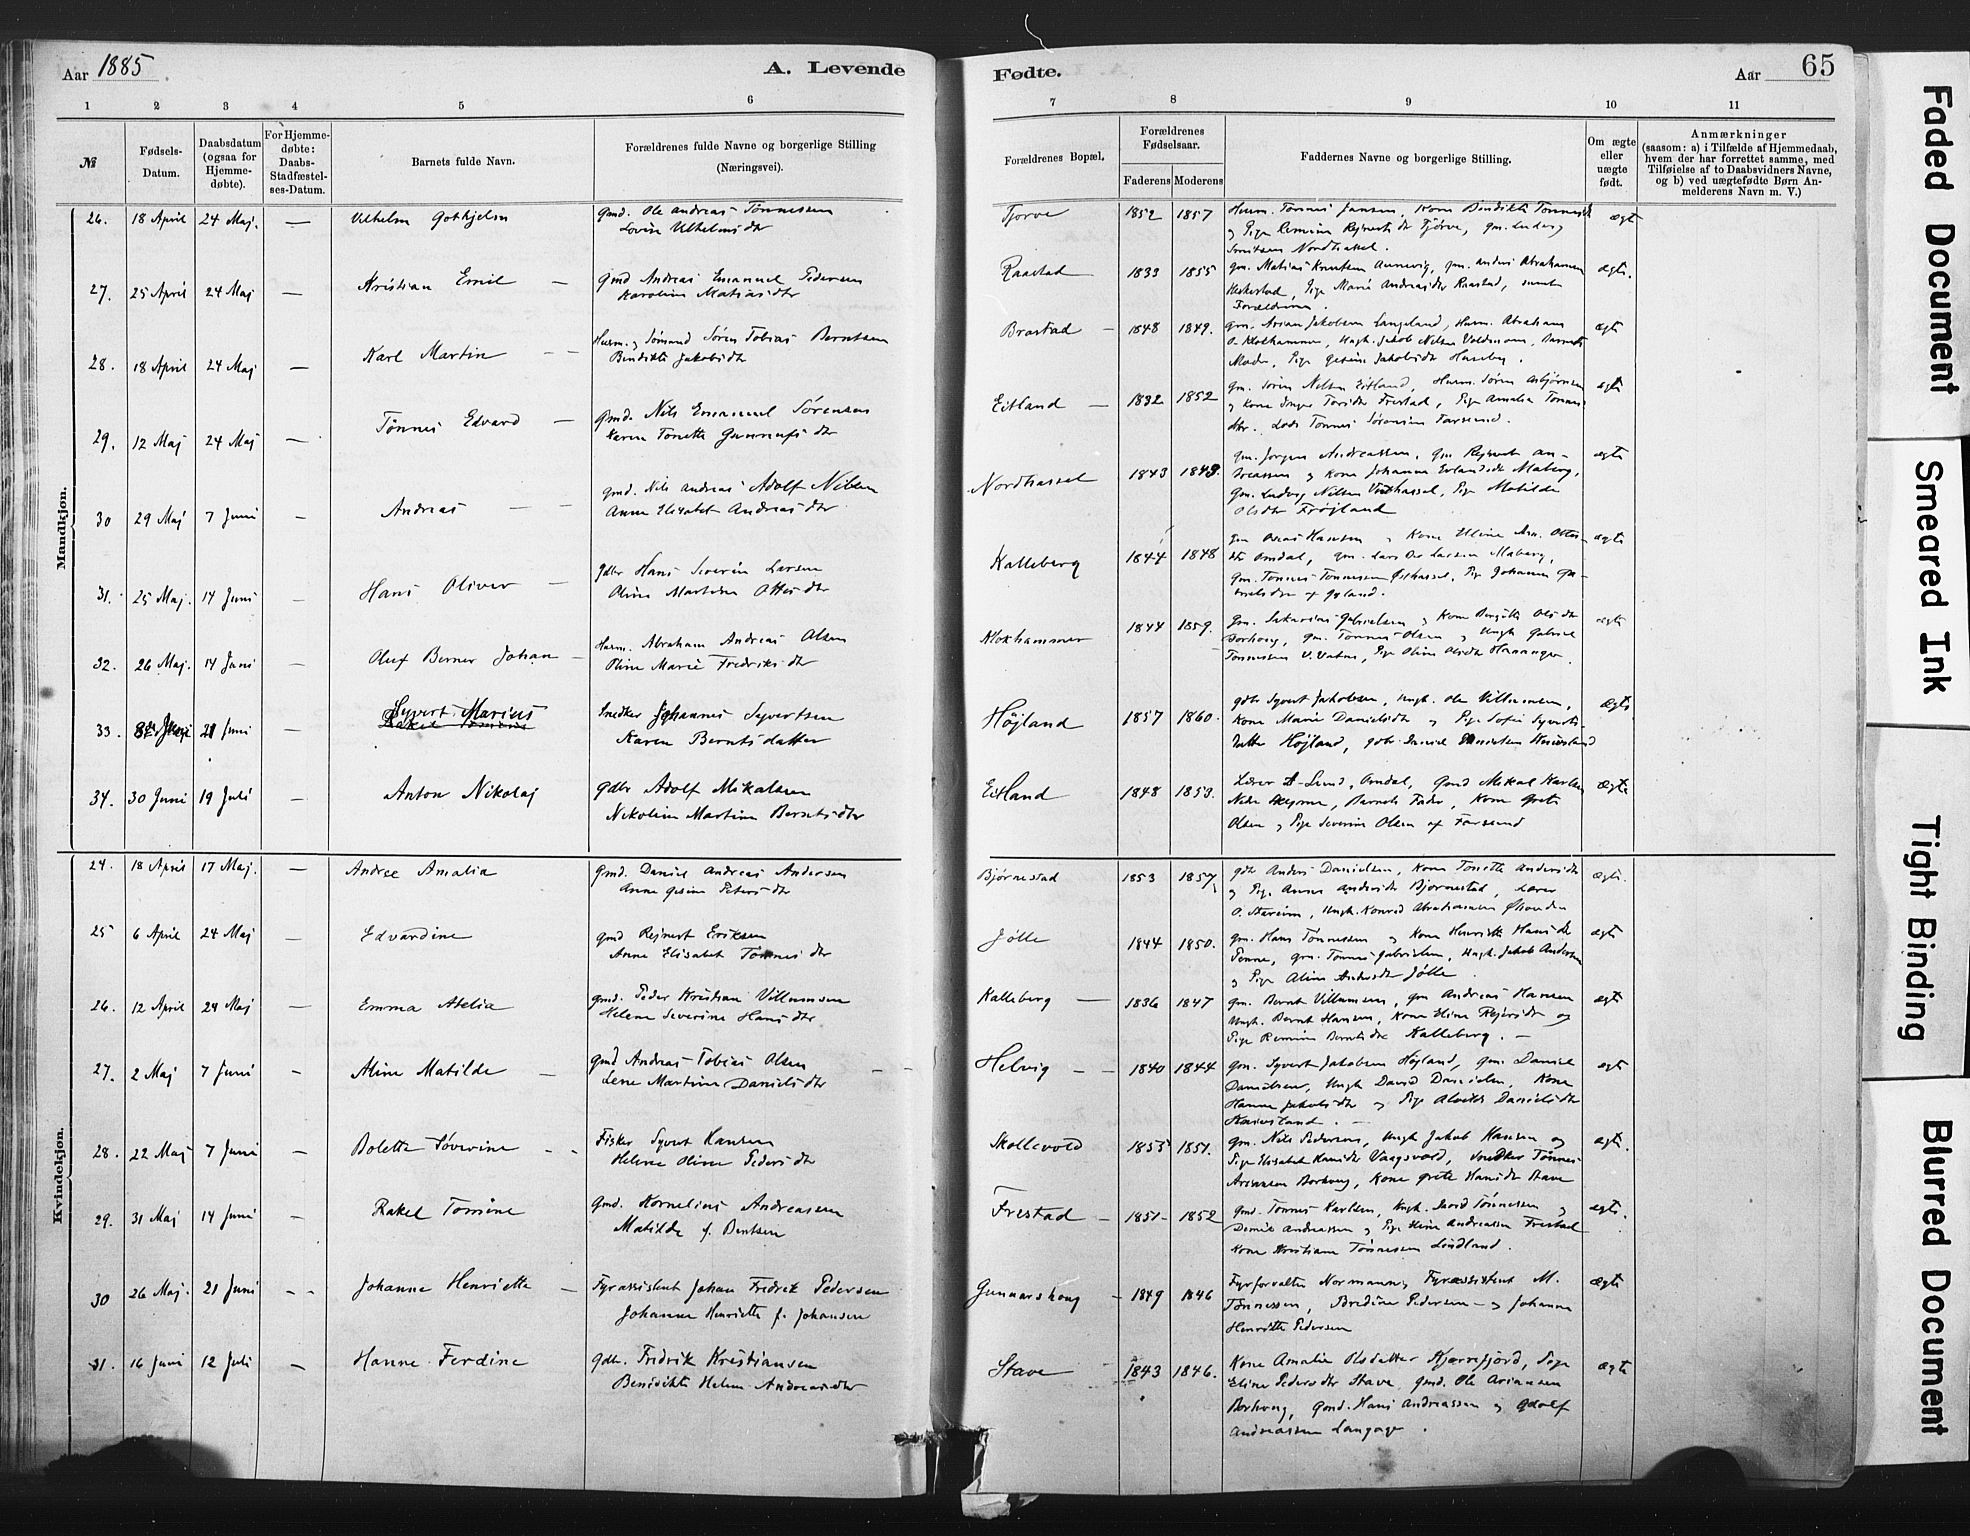 Aar 1885
A. Levende
Fødte.
Aar
65
1 2 3 4 5 6 7 8 9 10 11
№
Fødsels-
Datum.
Daabsdatum
(ogsaa for
Hjemme-
døbte).
For Hjemme-
døbte:
Daabs-
Stadfæstel-
ses-Datum.
Barnets fulde Navn.
Forældrenes fulde Navne og borgerlige Stilling
(Næringsvei).
Forældrenes Bopæl.
Forældrenes
Fødselsaar.
Faderens Moderens
Faddernes Navne og borgerlige Stilling.
Om ægte
eller
uægte
født.
Anmærkninger
(saasom: a) i Tilfælde af Hjemmedaab,
hvem der har forrettet samme, med
Tilføielse af to Daabsvidners Navne,
og b) ved uægtefødte Børn An-
melderens Navn m. V.)
Mandkjøn.
26. 18 April 24 Maj. — Vilhelm Gothjelm
Gmd. Ole Andreas Tønnessen
Lovise Vilhelmsdtr
Tjørve 1852 1857
Husm. Tønnes Jansen, Kone Bendikte
og Pige Tjørve, gm. Ludvig
Nordhassel.
ægt
27. 25 April 24 Maj — Kristian Emil —
Gmd Andreas Emanuel Pedersen
Karoline Mathiasdtr
Raastad 1833 1855
gm. Matias Knutsen Aunevig, gm. Anders Abrahamsen
Pige Marie Andreasdtr Raastad, samt
Forældrene.
ægte.
28. 18 April 24 Maj — Karl Martin — —
Husm. og Sømand Søren Tobias Berntsen
Bendikte Jakobsdtr
Brastad — 1848 1849.
gm. Arian Jakobsen Langeland, Husm. Abraham
O. Klokhammer, Ungk. Jakob Nilsen Barnets
Moder, Pige Gesine Jakobsdtr
ægte
29. 12 Maj 24 Maj — Tønnes Edvard —
Gmd. Nils Emanuel Sørensen
Karen Tonette Gunnufsdtr
Eitland — 1832 1852
gm. Søren Nilsen Eitland, Husm. Søren Asbjørnsen
og Kone Frestad, Pige Amalia Tønnes
dtr. Lods Tønnes Sørensen Farsund.
ægte
30 29 Maj 7 Juni — Andreas — —
Gmd. Nils Andreas Adolf Nilsen
Anne Elisabet Andreasdtr
Nordhassel 1843 1843.
gm. Jørgen Andreassen, gm Rejnert An-
dreassen og Kone Johanne Maberg,
gm. Ludvig Nilsen Pige Matilde
Olsdtr Frøjland
ægte
31. 25 Maj. 14 Juni — Hans Oliver —
Gdbr Hans Severin Larsen
Oline Martine Ottosdtr
Kalleberg 1844 1848
gm Hansen og Kone
Omdal, gm. Lars Larsen Maberg,
gm. Tønnes Tønnessen Østhassel, Pige Johanne
ægte
32. 26 Maj. 14 Juni — Oluf Berner Johan —
Husm. Abraham Andreas Olsen
Oline Marie Fredriksdtr
Klokhammer 1844 1859.
gm. Sakarias Gabrielsen og Kone Olsdtr
Borhoug, gm. Tønnes Olsen og Ungk Gabriel
Tønnessen V. Vatne, Pige Oline Olsdtr
ægte
33. Juni 21 Juni — Syvert Marius
Snedker Johannes Syvertsen
Karen Berntsdatter
Højland 1857 1860.
gdbr Syvert Jakobsen, Ungk. Ole Villumsen,
Kone Marie Danielsdtr og Pige Sofie Syverts-
datter Højland, gdbr. Daniel
Ægte
34. 30 Juni 19 Juli — Anton Nikolaj
Gdbr Adolf Mikalsen
Nikoline Martine Berntsdtr
Eitland 1848 1853.
Lærer Lund, Omdal, Gmd Mikal Karlsen
Nedre Barnets Fader, Kone Grete
Olsen og Pige Severine Olsen af Farsund
Ægte
Kvindekjøn.
24. 18 April 17 Maj. — Andree Amalia
Gmd. Daniel Andreas Andersen
Anne Gesine Petersdtr
Bjørnestad 1853 1857
gdbr Anders Danielsen, Kone Tonette Andersdtr
og Pige Anne Andersdtr Bjørnestad, Lærer
O. Ungk. Konrad Abrahamsen
ægte.
25 6 April 24 Maj — Edvardine
gmd Rejnert Eriksen
Anne Elisabet Tønnesdtr
Jølle 1844 1850.
gm. Hans Tønnessen og Kone Henriette Hansdtr
Penne, gm. Tønnes Gabrielsen, Ungk. Jakob Andersen
og Pige Aline Andersdtr Jølle.
ægte
26. 12 April 24 Maj — Emma Atelia
gmd. Peder Kristian Villumsen
Helene Severine Hansdtr
Kalleberg — 1836 1847
gm. Bernt Villumsen, gm Andreas Hansen
Ungk. Bernt Hansen, Kone Eline og
Pige Berntsdtr Kalleberg. —
ægte
27. 2 Maj 7 Juni — Aline Matilde —
gmd Andreas Tobias Olsen
Lene Martine Danielsdtr
Helvig — — 1840 1844
gm. Syvert Jakobsen Højland, gm. Daniel
Danielsen, Ungk David Danielsen, Kone
Hanne Jakobsdtr og Pige Alvilde Danielsdtr
ægte
28. 22 Maj 7 Juni — Bolette — —
Fisker Syvert Hansen
Helene Oline Pedersdtr
Skollevold 1853 1851.
gm. Nils Pedersen, Ungk Jakob Hansen og
Pige Elisabet Hansdtr Vaagsvold, Snedker Tønnes
Ariansen Borhoug, Kone Grete Hansdtr Stave
ægte.
29. 31 Maj 14 Juni — Rakel Tomine
Gmd. Kornelius Andreassen
Matilde f. Bentsen
Frestad — 1851 1852
Gmd. Tønnes Karlsen, Ungk. David Tønnessen og
Andreassen og Pige Andreassen Frestad
Kone Kristiane Tønnessen Lindland.
ægte.
30 26 Maj. 21 Juni — Johanne Henriette —
Fyrassistent Johan Fredrik Pedersen
Johanne Henriette f. Johansen
Gunnarshoug — 1849 1846
Fyrforvalter Normann, Fyrassistent M.
Tønnessen, Bredine Pedersen og Johanne
Henriette Pedersen
ægte
31. 16 Juni 12 Juli — Hanne Ferdine
Gdb. Fredrik Kristiansen
Bendikte Helene Andreasdtr
Stave 1843 1846.
Kone Amalie Olsdatter Kjørrefjord, Pige
Eline Pedersdtr Stave, Gmd. Ole Ariansen
Borhoug, Gmd. Hans Andreassen og Adolf
Andreassen Langager.
ægte
Faded Document
Smeared Ink
Tight Binding
Blurred Document